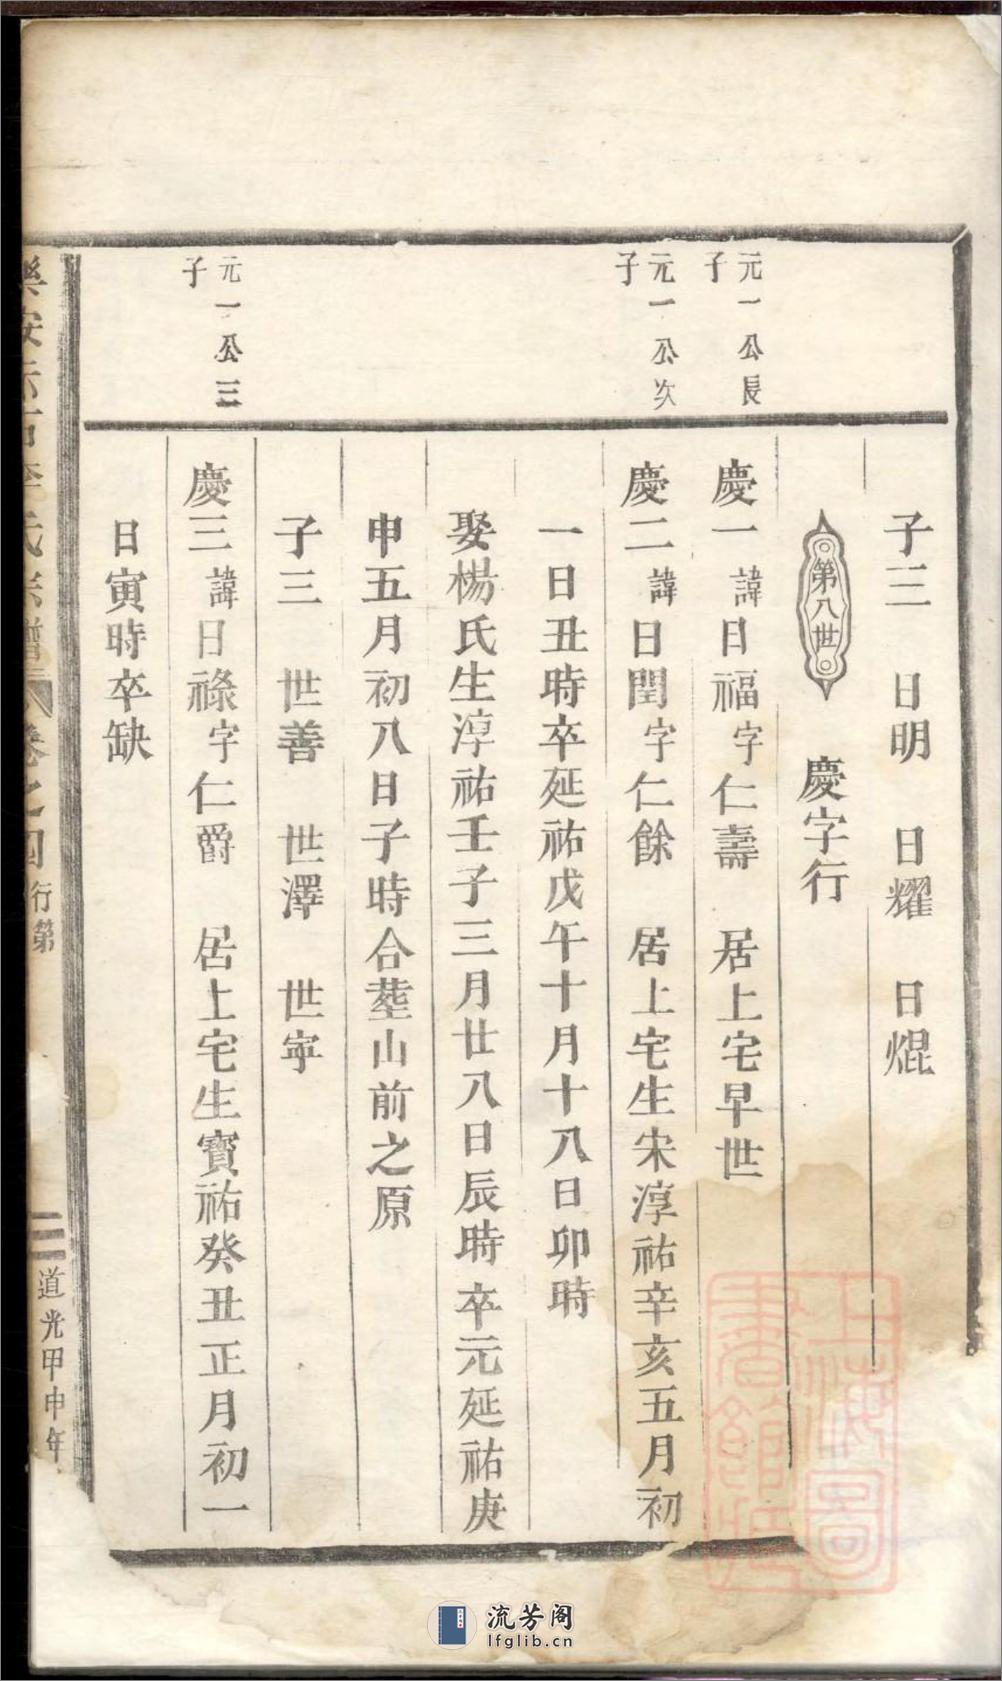 子三　日明　日耀　日焜
第八世　慶字行
元一公長子
慶一諱日福字仁壽　居上宅早世
元一公次子
慶二諱日閏字仁餘　居上宅生宋淳祐辛亥五月初
一日丑時卒延祐戊午十月十八日卯時
娶楊氏生淳祐壬子三月廿八日辰時卒元延祐庚
申五月初八日子時合塟山前之原
子三　世善　世澤　世寧
元一公三子
慶三諱日祿字仁爵　居上宅生寶祐癸丑正月初一
日寅時卒缺
樂安　氏宗譜　卷之四　行第　三　道光甲申年
上海圖書館藏
流芳阁
lfglib.cn